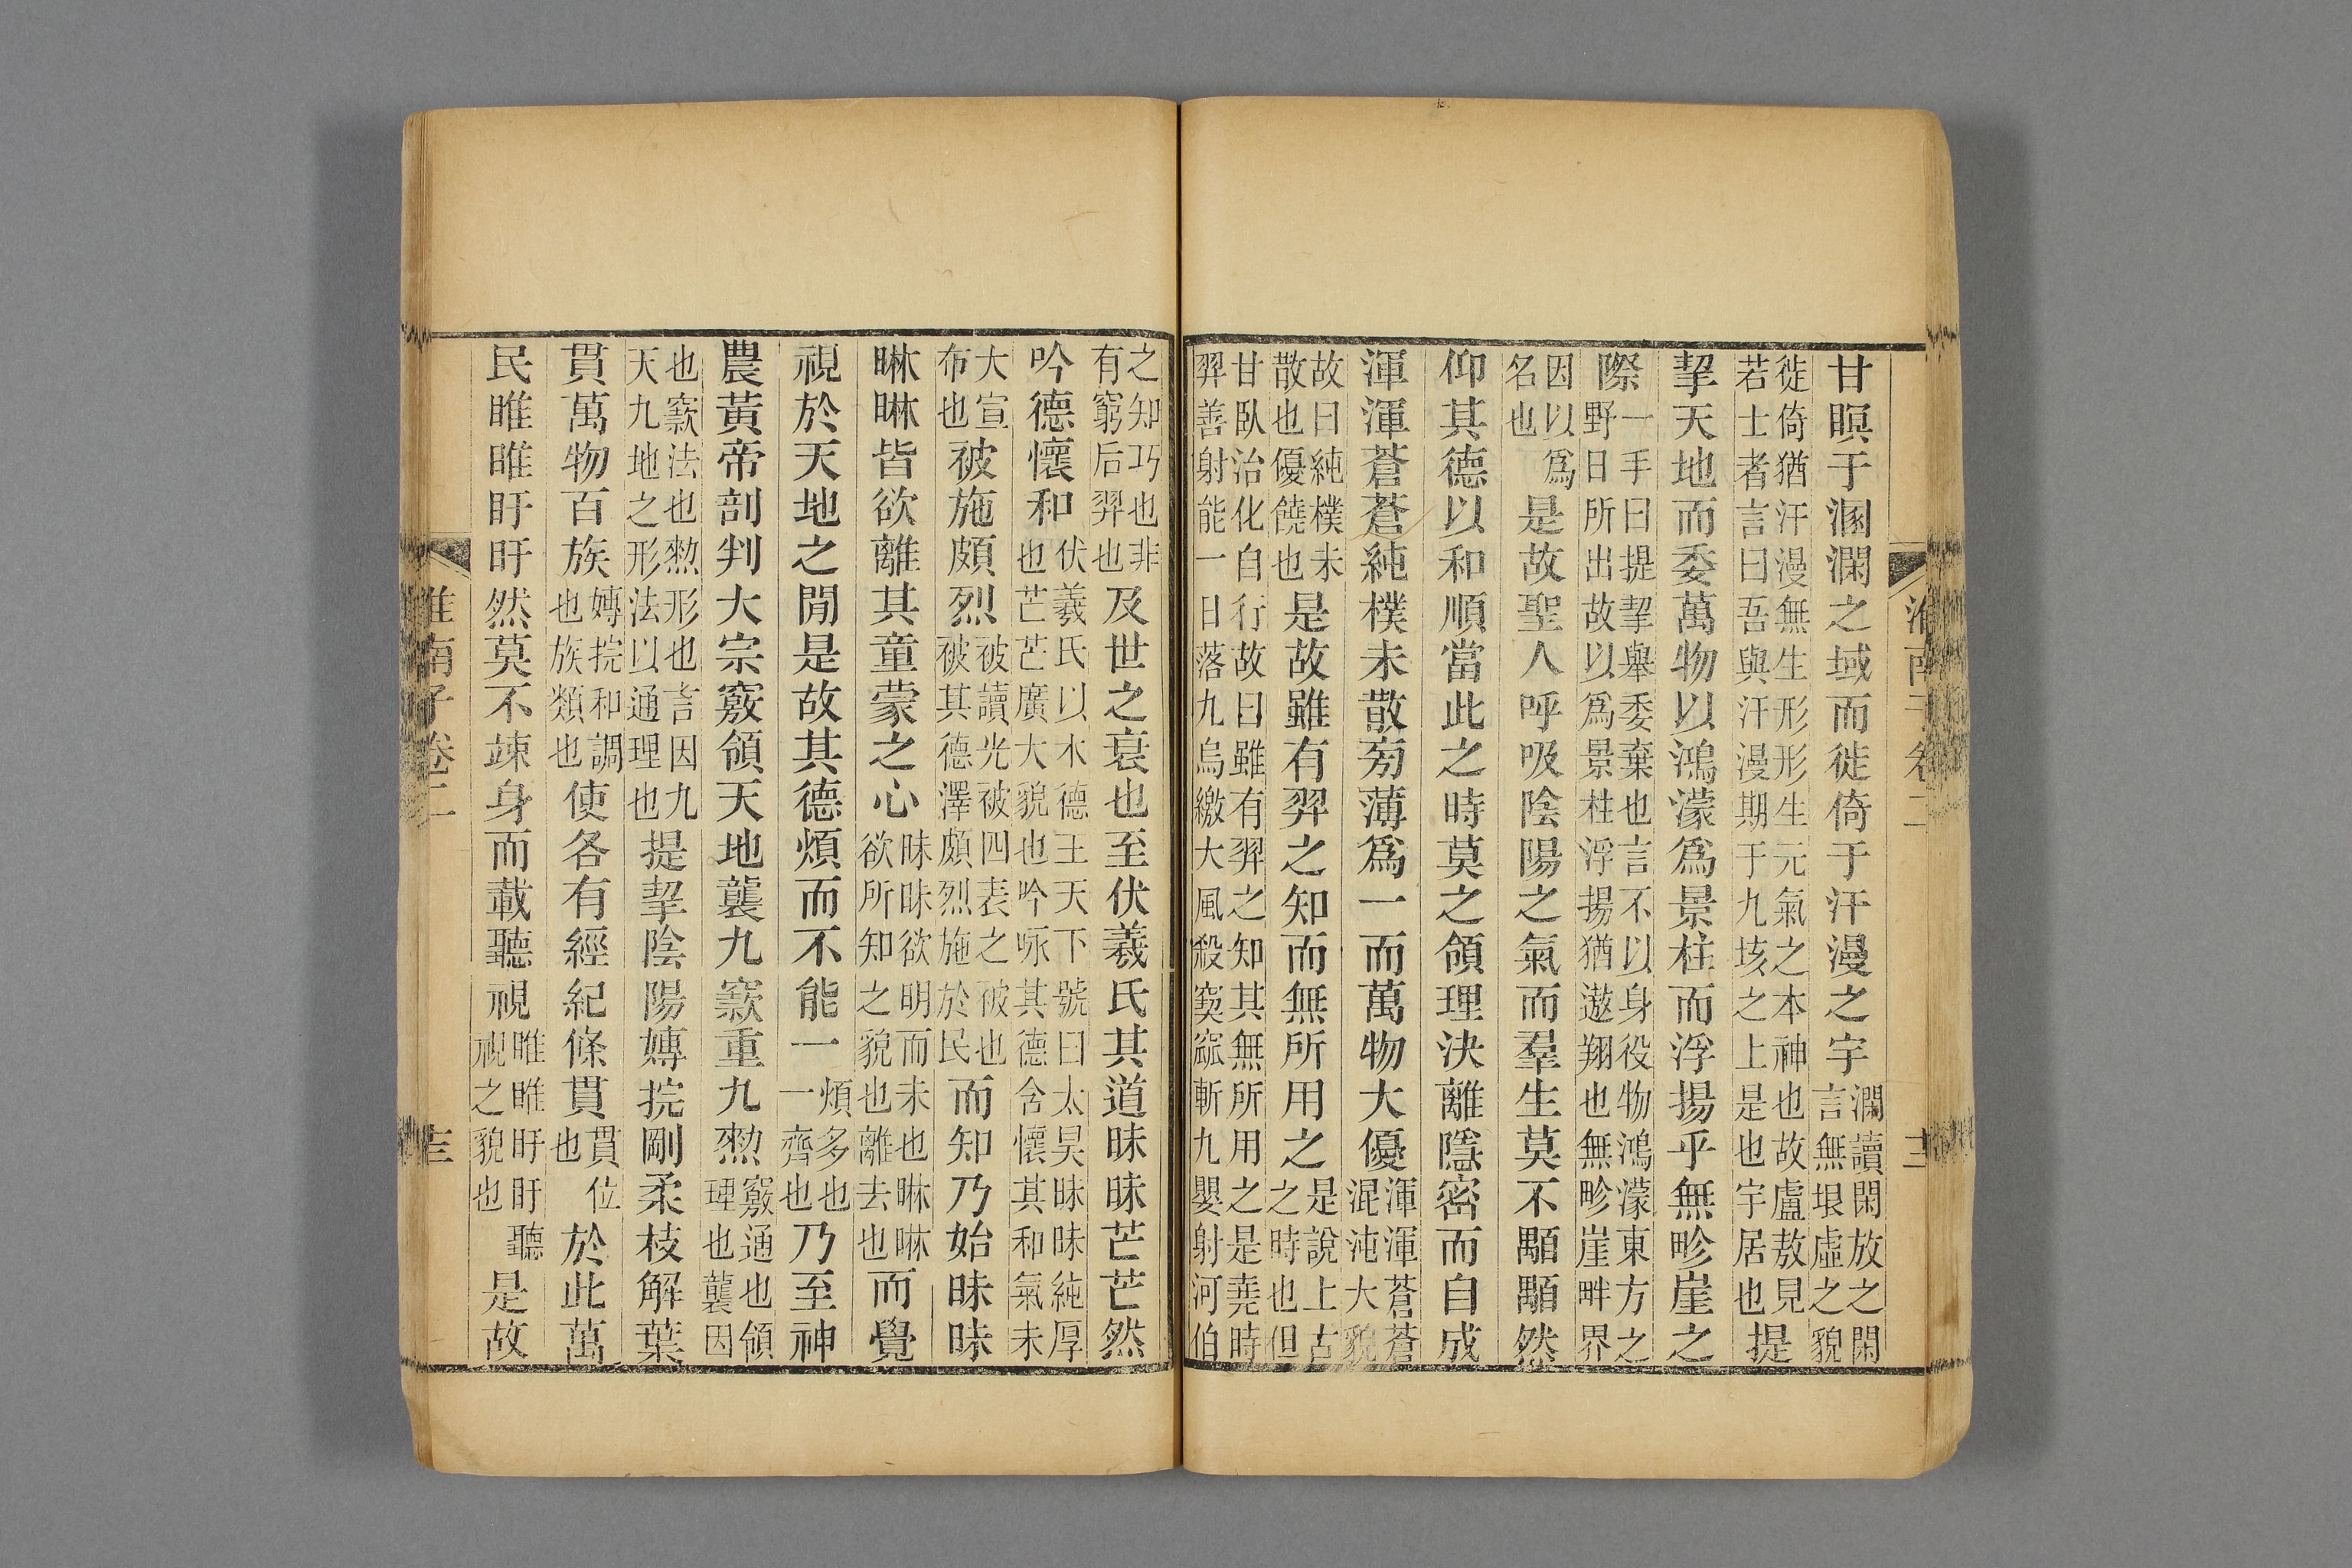 淮南子卷二 十二
甘瞑于溷澖之域而徙倚于汗漫之宇澖讀閑放之閑言無垠虛之貌
徙倚猶汗漫無生形形生元氣之本神也故盧敖見若士者言曰吾與汗漫期于九垓之上是也宇居也提
挈天地而委萬物以鴻濛爲景柱而浮揚乎無畛崖之
際一手曰提挈舉委棄也言不以身役物鴻濛東方之野日所出故以爲景柱浮揚猶遨翔也無畛崖畔界
因以爲名也是故聖人呼吸陰陽之氣而羣生莫不顒顒然
仰其德以和順當此之時莫之領理決離隱密而自成
渾渾蒼蒼純樸未散旁薄爲一而萬物大優渾渾蒼蒼混沌大貌
故曰純樸未散也優饒也是故雖有羿之知而無所用之是說上古之時也但
甘臥治化自行故曰雖有羿之知其無所用之是堯時羿善射能一日落九烏繳大風殺窫窳斬九嬰射河伯
之知巧也非有窮后羿也及世之衰也至伏羲氏其道昧昧芒芒然
吟德懷和伏羲氏以木德王天下號曰太昊昧昧純厚也芒芒廣大貌也吟咏其德含懷其和氣未
大宣布也被施頗烈被讀光被四表之被也被其德澤頗烈施於民而知乃始昧昧
晽晽皆欲離其童蒙之心昧昧欲明而未也晽晽欲所知之貌也離去也而覺
視於天地之閒是故其德煩而不能一煩多也一齊也乃至神
農黃帝剖判大宗竅領天地襲九窾重九熱竅通也領理也襲因
也窾法也熱形也言因九天九地之形法以通理也提挈陰陽嫥捖剛柔枝解葉
貫萬物百族嫥捖和調也族類也使各有經紀條貫貫位也於此萬
民睢睢盱盱然莫不竦身而載聽視睢睢盱盱聽視之貌也是故
淮南子卷二 十三